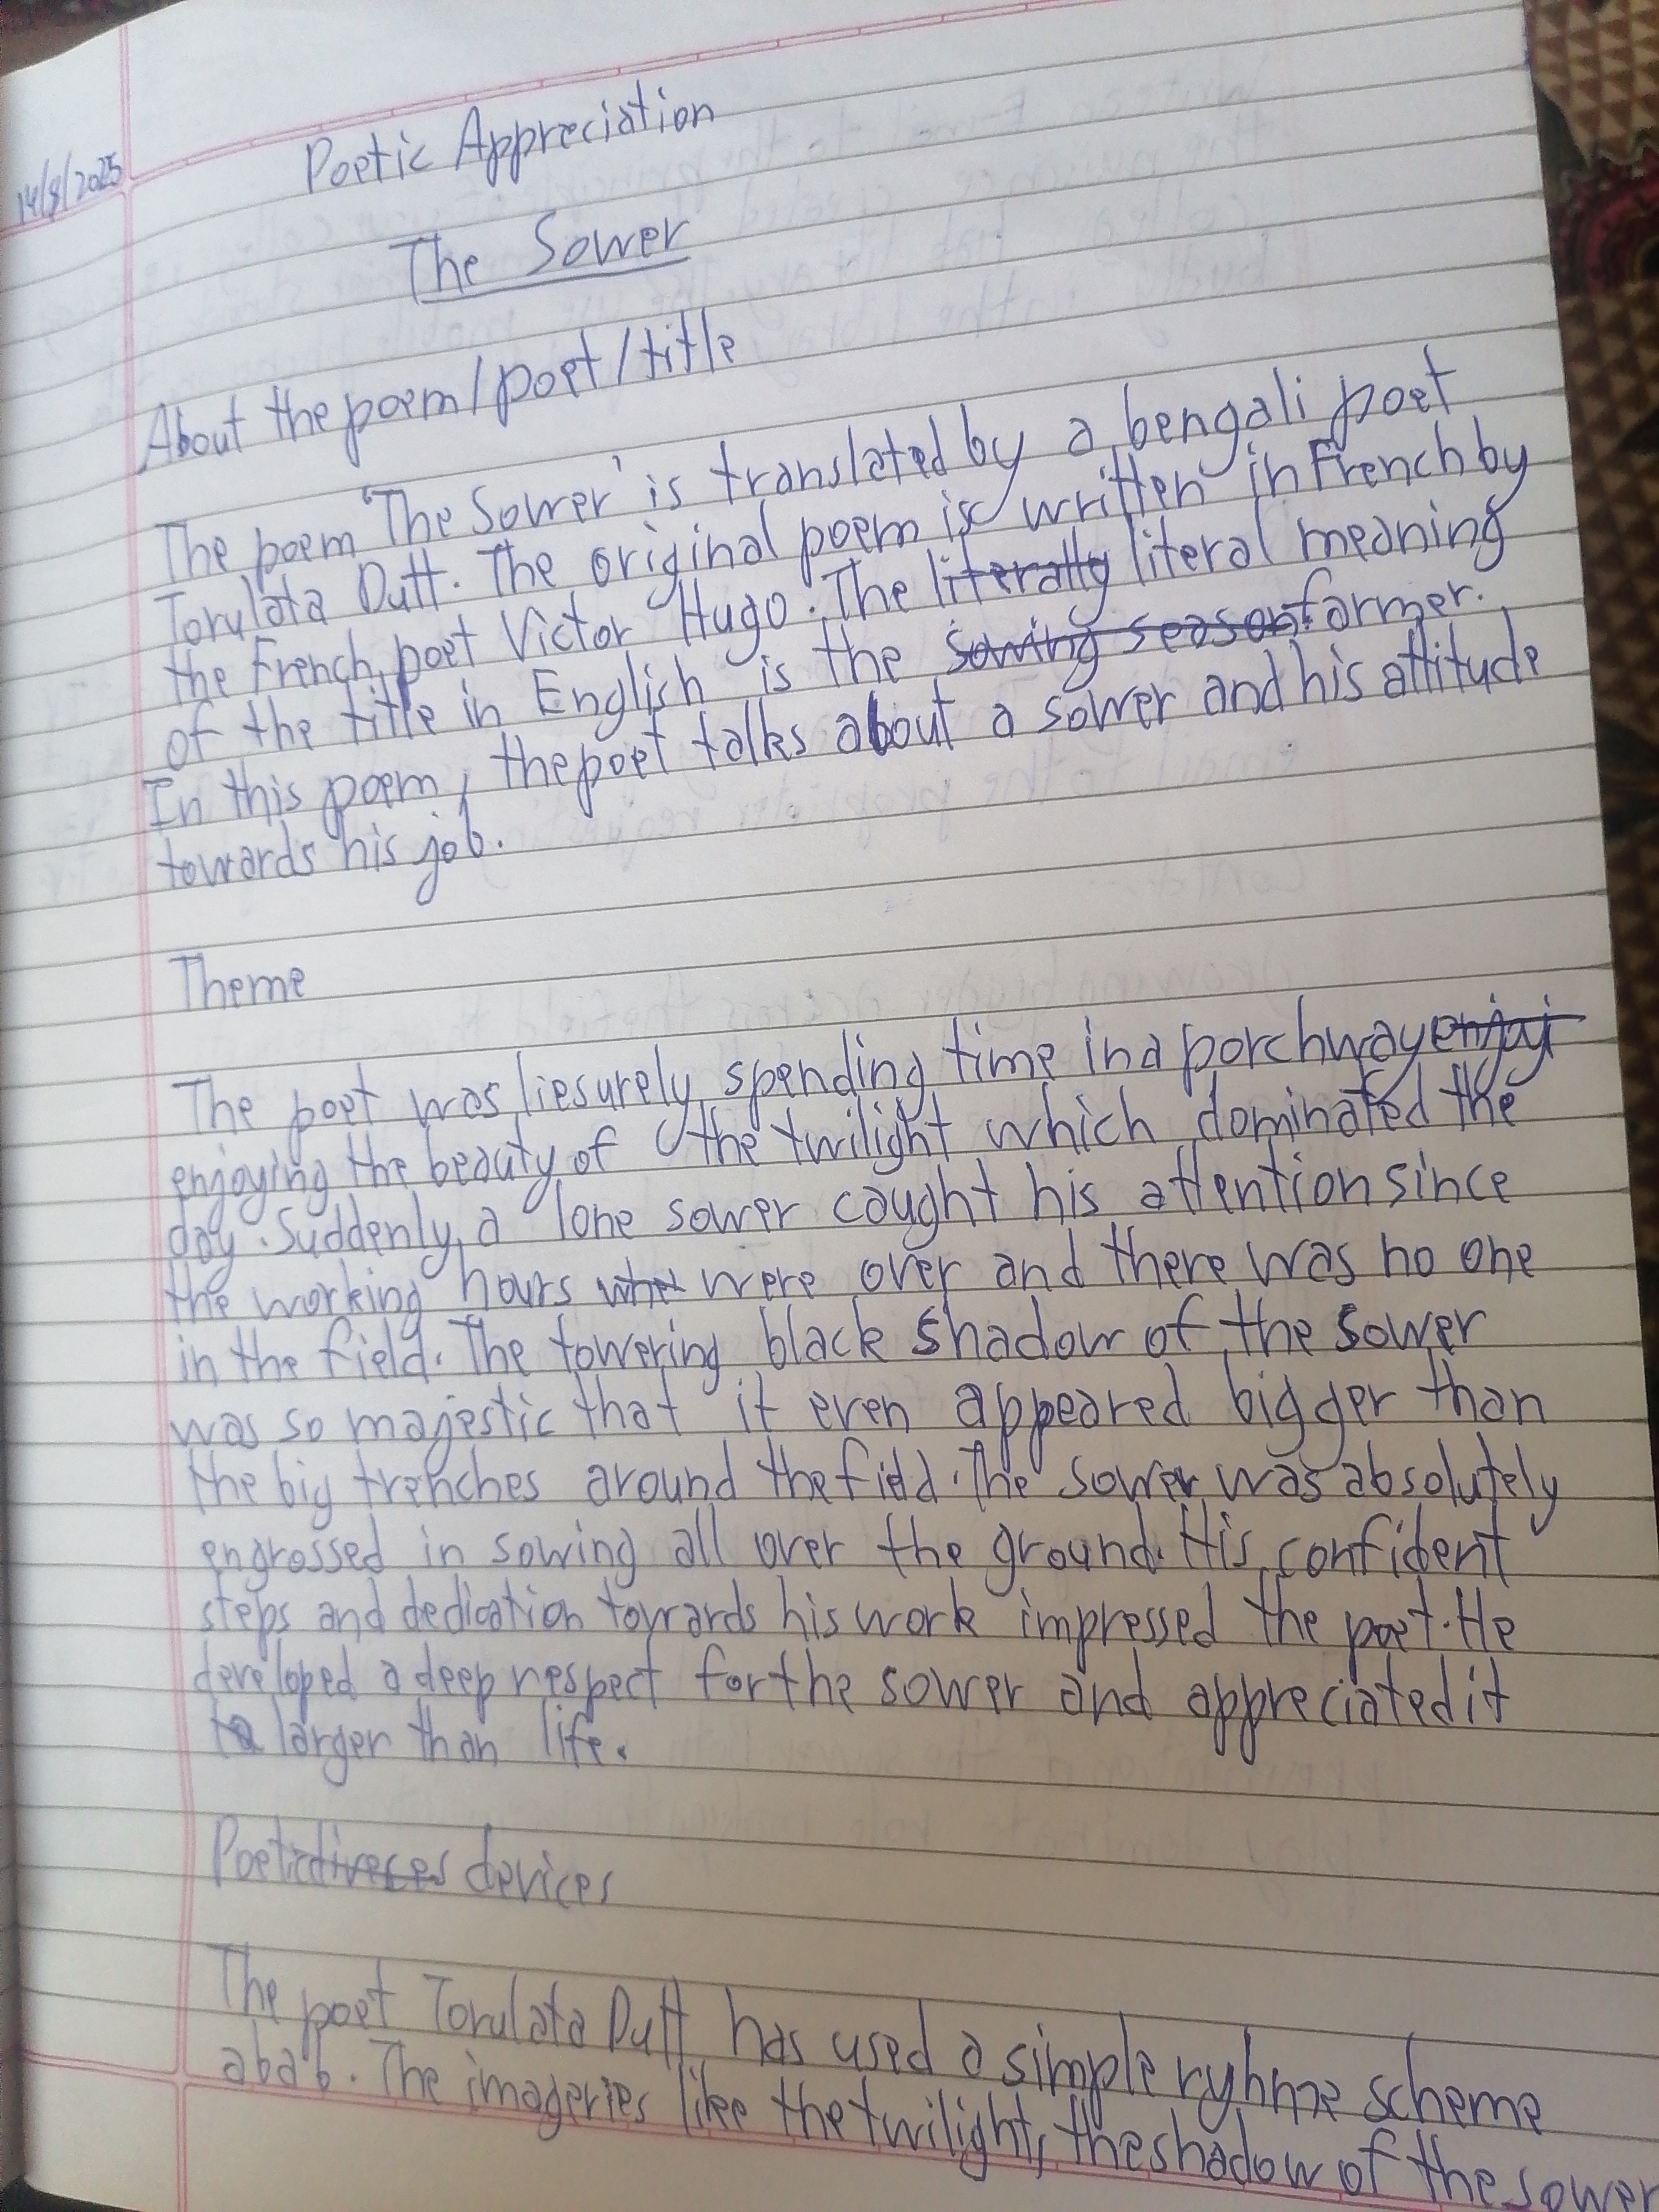 14/8/2025
Poetic Appreciation
The Sower
About the poem/poet/title
The poem 'The Sower' is translated by a bengali poet
Torulata Dutt. The original poem is written in French by
the French poet Victor Hugo. The literally literal meaning
of the title in English is the sowing season farmer.
In this poem, the poet talks about a sower and his attitude
towards his job.
Theme
The poet was liesurely spending time in a porchway enjoy
enjoying the beauty of the twilight which dominated the
day. Suddenly, a lone sower caught his attention since
the working hours when were over and there was no one
in the field. The towering black shadow of the sower
was so majestic that it even appeared bigger than
the big trenches around the field. The sower was absolutely
engrossed in sowing all over the ground. His confident
steps and dedication towards his work impressed the poet. He
developed a deep respect for the sower and appreciated it
larger than life.
Poetic devices
The poet Torulata Dutt has used a simple ryhme scheme
abab. The imageries like the twilight, the shadow of the sower